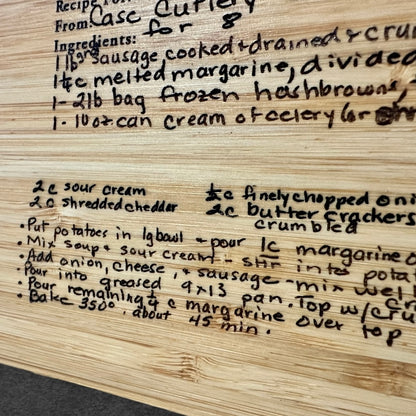 Recipe
From: Case Cutlery
for 8
Ingredients:
1 lb sausage, cooked + drained + cru
1¼ c melted margarine, divided
1 - 2lb bag frozen hashbrowns,
1 - 10 oz can cream of celery (or
2 c sour cream
2 c shredded cheddar
½ c finely chopped oni
2c butter crackers
crumbled
• Put potatoes in lg bowl + pour 1c margarine o
• Mix soup + sour cream - stir into potat
• Add onion, cheese, + sausage - mix well
• Pour into greased 9x13 pan. Top w/ cru
• Pour remaining ¼ c margarine over top
• Bake 350° about 45 min.